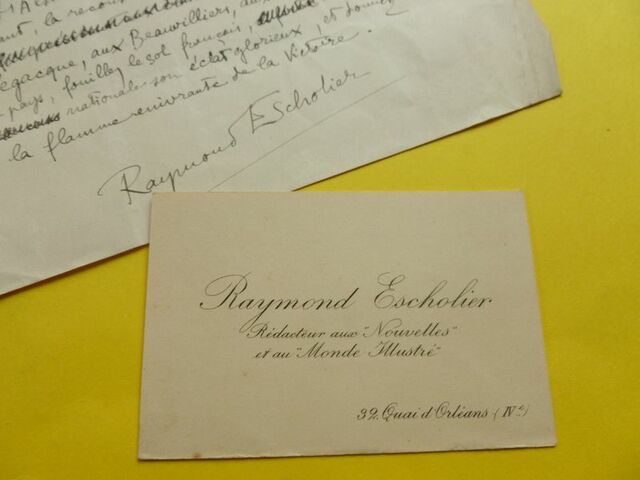 ant, la recons
égacque, aux Beauvilliers, au
pays, fouiller le sol français, et donner
nationale son éclat glorieux,
la flamme enivrante de la Victoire.
Raymond Escholier
Raymond Escholier
Rédacteur aux "Nouvelles"
et au "Monde Illustré"
32 Quai d'Orléans (IVe)